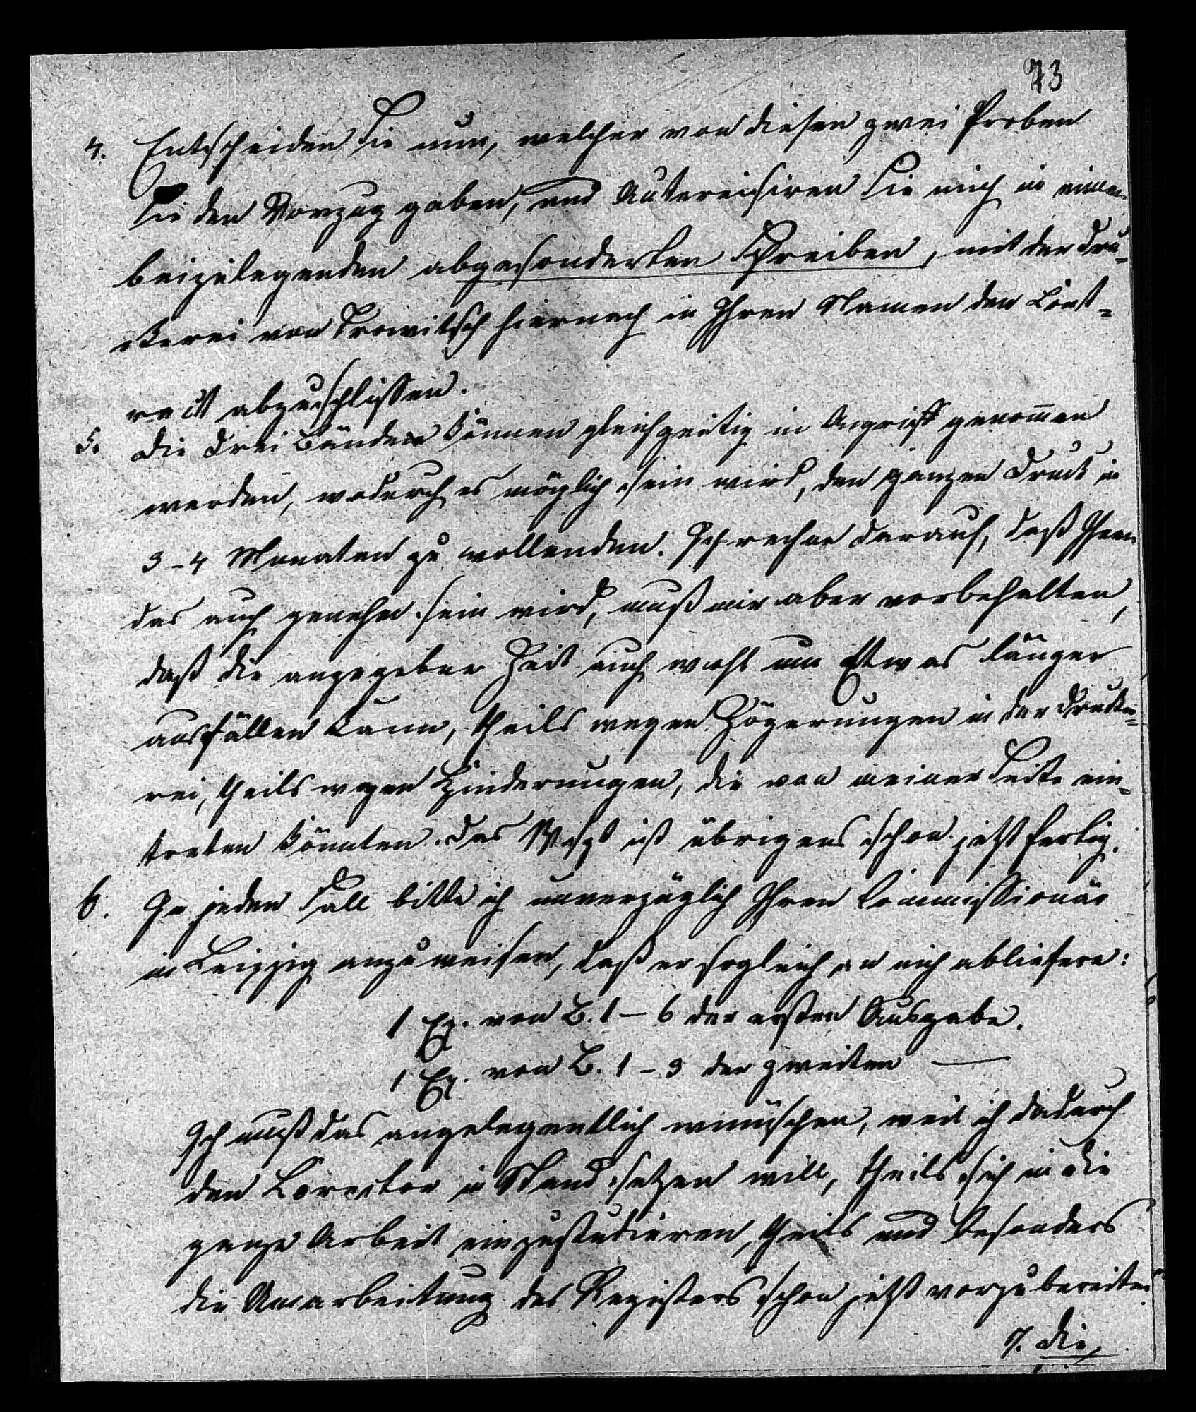 73
4. Entscheiden Sie nun, welcher von diesen zwei Proben
Sie den Vorzug geben, und Autorisiren Sie mich in einem
beizulegenden abgesonderten Schreiben, mit der Dru-
ckerei von Trowitsch hiernach in Ihren Namen den Cont-
ract abzuschlissen.
5. Die drei Bände können gleichzeitig in Angriff genommen
werden, wodurch es möglich sein wird, den ganzen Druck in
3-4 Monaten zu vollenden. Ich rechne darauf, daß Ihnen
das auch genehm sein wird, muß mir aber vorbehalten,
daß die angegeben Zeit auch wohl um Etwas länger
ausfallen kann, theils wegen Zögerungen in der Drucke-
rei, theils wegen Hinderungen, die von meiner Seite ein-
treten könnten. Das Mspt ist übrigens schon jetzt fertig.
6. In jeden Fall bitte ich unverzüglich Ihren Commissionär
in Leipzig anzuweisen, daß er sogleich an mich abliefere:
1 Ex. von B. 1-6 der ersten Ausgabe.
1 Ex. von B. 1-3 der zweiten —
Ich muß das angelegentlich wünschen, weil ich dadurch
den Corector in Stand setzen will, theils sich in die
ganze Arbeit einzustudieren, theils und besonders
die Ausarbeitung des Registers schon jetzt vorzubereiten.
7. die